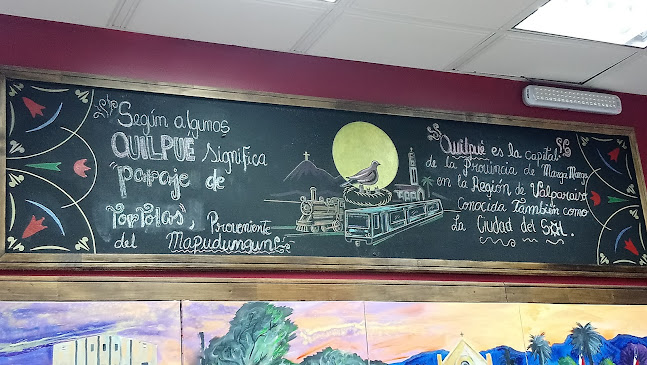 Según algunos
QUILPUÉ significa
paraje de
tórtolas, Proveniente
del Mapudungun
Quilpué es la capital
de la Provincia de Marga Marga
en la Región de Valparaíso
Conocida También como
La Ciudad del Sol.